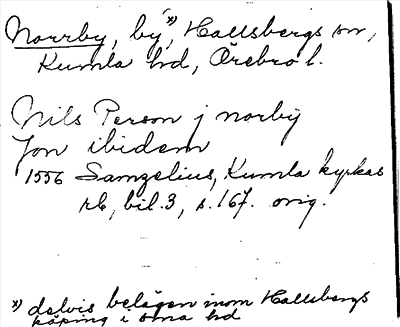 Norrby, by,*) Hallsbergs sn,
Kumla hd, Örebro l.
Nils Person j norby
Jon ibidem
1556 Samzelius, Kumla kyrkas
rb, bil. 3, s. 167. orig.
*) delvis belägen inom Hallsbergs
köping i sma hd